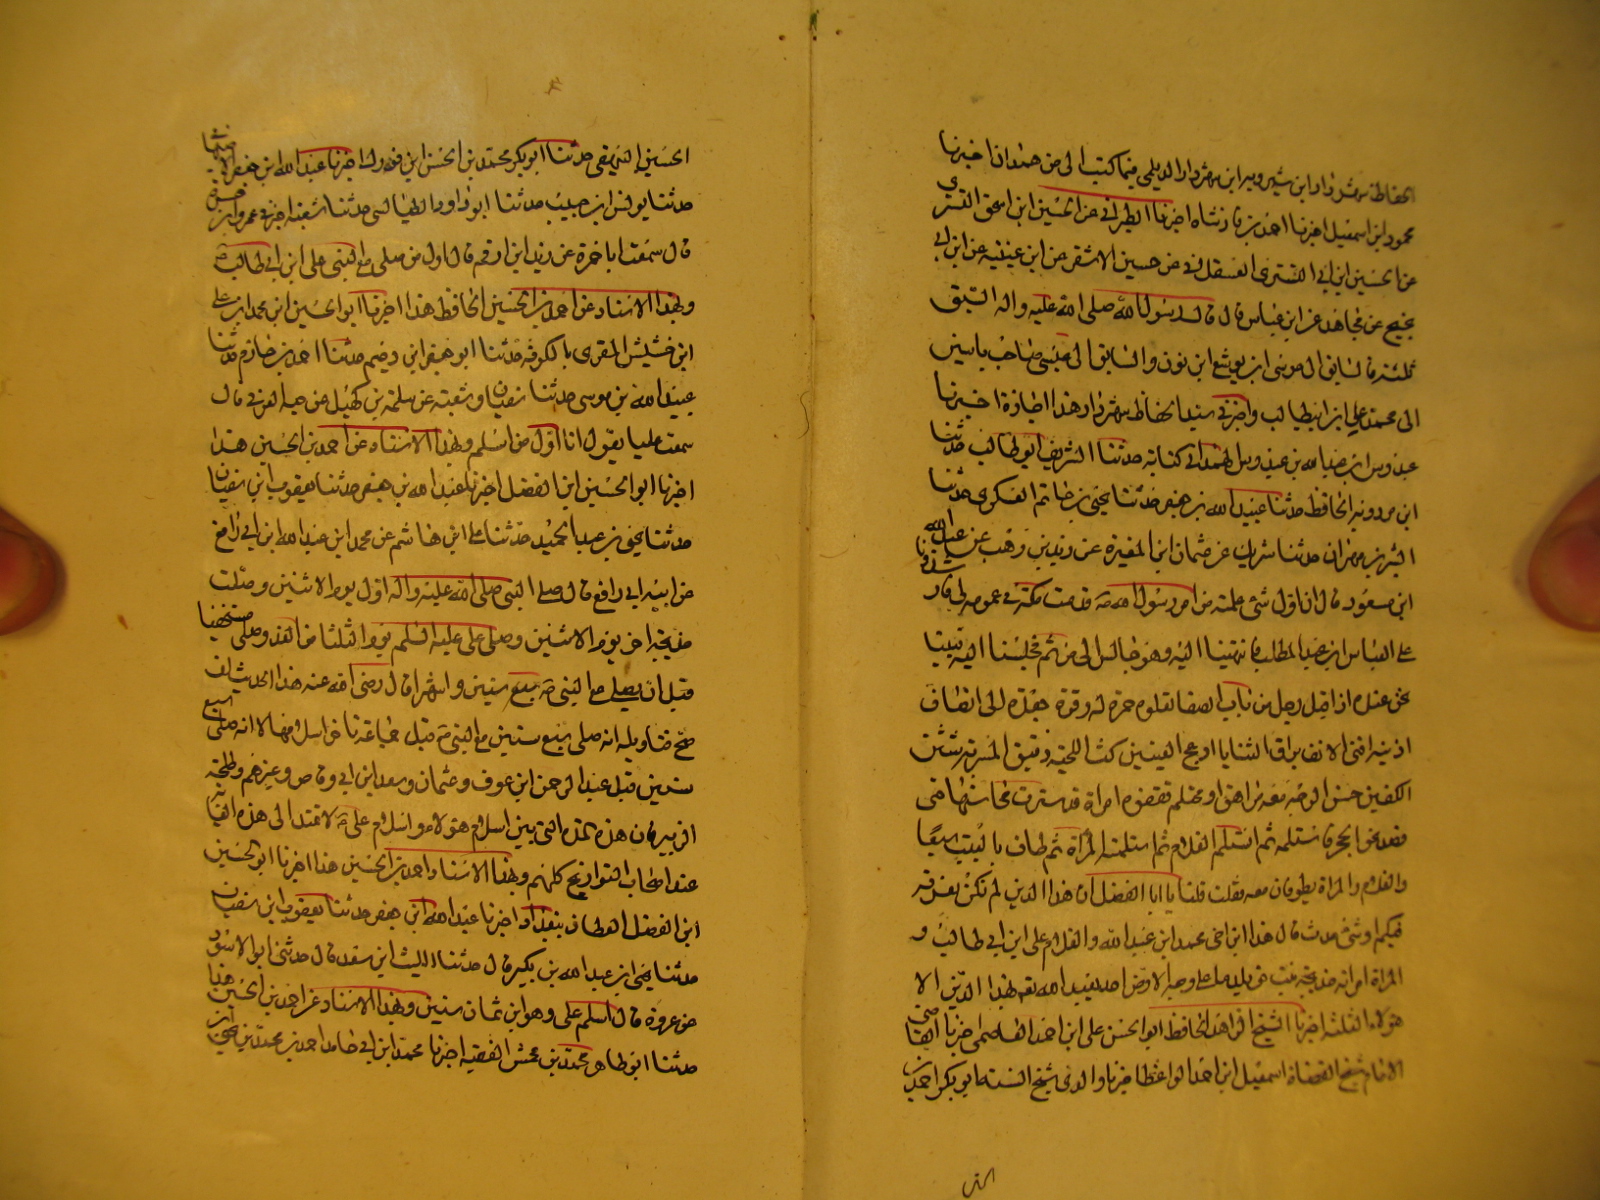 الحفاظ شهردار ابن شيرويه ابن شهردار الديلمي فيما كتب الي من همدان اخبرنا
محمود ابن اسمعيل اخبرنا احمد بن فادشاه اخبرنا الطبراني عن الحسين ابن اسحق التستري
عن الحسين ابن ابي السري العسقلاني عن حسين الاشقر عن ابن عيينه عن ابن ابي
نجيح عن مجاهد عن ابن عباس قال قال رسول الله صلى الله عليه واله السبق
ثلثه فالسابق الى موسى ابن يوشع ابن نون والسابق الى عيسى صاحب ياسين
الى محمد علي ابن ابيطالب واخبرني سيد الحفاظ شهردار هذا اجازة اخبرنا
عبدوس ابن عبد الله بن عبدوس الهمداني كتابة حدثنا الشريف ابو طالب حدثنا
ابن مردويه الحافظ حدثنا عبيد الله بن جعفر حدثنا يحيى بن حاتم العسكري حدثنا
البشر بن مهران حدثنا شريك عن عثمان ابن المغيرة عن زيد بن وهب عن عبد الله
ابن مسعود قال ان اول شئ علمته من امر رسول الله ص قدمت مكة في عمومة لي فارشدونا
على العباس ابن عبد المطلب فانتهينا اليه وهو جالس الى زمزم فجلسنا اليه فبينا
نحن عنده اذا اقبل رجل من باب الصفا تعلوه حمرة له وفرة جعدة الى انصاف
اذنيه اقنى الانف براق الثنايا ادعج العينين كث اللحية دقيق المسربه شثن
الكفين حسن الوجه معه مراهق او محتلم تقفوه امراة قد سترت محاسنها حتى
قصد نحو الحجر فاستلمه ثم استلم الغلام ثم استلمته المراة ثم طاف بالبيت سبعا
والغلام والمراة يطوفان معه فقلت قلنا يا ابا الفضل ان هذا الدين لم نكن نعرفه
فيكم او شئ حدث قال هذا ابن اخي محمد ابن عبد الله والغلام علي ابن ابي طالب و
المراة امراته خديجه بنت خويلد ما على وجه الارض احد يعبد الله بهذا الدين الا
هؤلاء الثلثه اخبرنا الشيخ الزاهد الحافظ ابو الحسن علي ابن احمد العاصمي اخبرنا القاضي
الامام شيخ القضاة اسمعيل ابن احمد الواعظ اخبرنا والدي شيخ السنه ابو بكر احمد بن
الحسين البيهقي حدثنا ابو بكر محمد بن الحسن ابن فورك اخبرنا عبد الله ابن جعفر الاصفهاني
حدثنا يونس ابن حبيب حدثنا ابو داود الطيالسي حدثنا شعبه اخبرني عمرو ابن مرة
قال سمعت ابا حمزة عن زيد ابن ارقم قال اول من صلى مع النبي علي ابن ابي طالب
وبهذا الاسناد عن احمد بن الحسين الحافظ هذا اخبرنا ابو الحسين ابن محمد ابن علي
ابن خشيش المقري بالكوفه حدثنا ابو جعفر ابن دحيم حدثنا احمد بن حازم حدثنا
عبيد الله بن موسى حدثنا سفيان وشعبه عن سلمة بن كهيل عن حبه العرني قال
سمعت عليا يقول انا اول من اسلم وبهذا الاسناد عن احمد بن الحسين هذا
اخبرنا ابو الحسين ابن الفضل اخبرنا عبد الله بن جعفر حدثنا يعقوب ابن سفيان
حدثنا يحيى بن عبد الحميد حدثنا علي ابن هاشم عن محمد ابن عبد الله ابن ابي رافع
عن ابيه ابي رافع قال صلى النبي صلى الله عليه واله اول يوم الاثنين وصلت
خديجة اخر يوم الاثنين وصلى علي عليه السلم يوم الثلثا من الغد وصلى مستخفيا
قبل ان يصلي مع النبي ص سبع سنين واشهرا قال رضى الله عنه هذا الحديث ان
صح فتاويله انه صلى سبع سنين مع النبي ص قبل جماعة تاخر اسلامها لا انه صلى سبع
سنين قبل عبد الرحمن ابن عوف وعثمان وسعد ابن ابي وقاص وغيرهم وطلحة
الزبير فان هذه المدة التي بين اسلام هؤلاء واسلام علي لا تمتد الى هذه الغاية
عند اصحاب التواريخ كلهم وبهذا الاسناد احمد بن الحسين هذا اخبرنا ابو الحسين
ابن الفضل القطان ببغداد اخبرنا عبد الله ابن جعفر حدثنا يعقوب ابن سفيان
حدثنا يحيى ابن عبد الله بن بكير قال حدثنا الليث ابن سعد قال حدثني ابو الاسود
عن عروة قال اسلم علي وهو ابن ثمان سنين وبهذا الاسناد عن احمد بن الحسين هذا
حدثنا ابو طاهر محمد بن محمش الفقيه اخبرنا محمد ابن ابي حامد احمد بن محمد بن يحيى